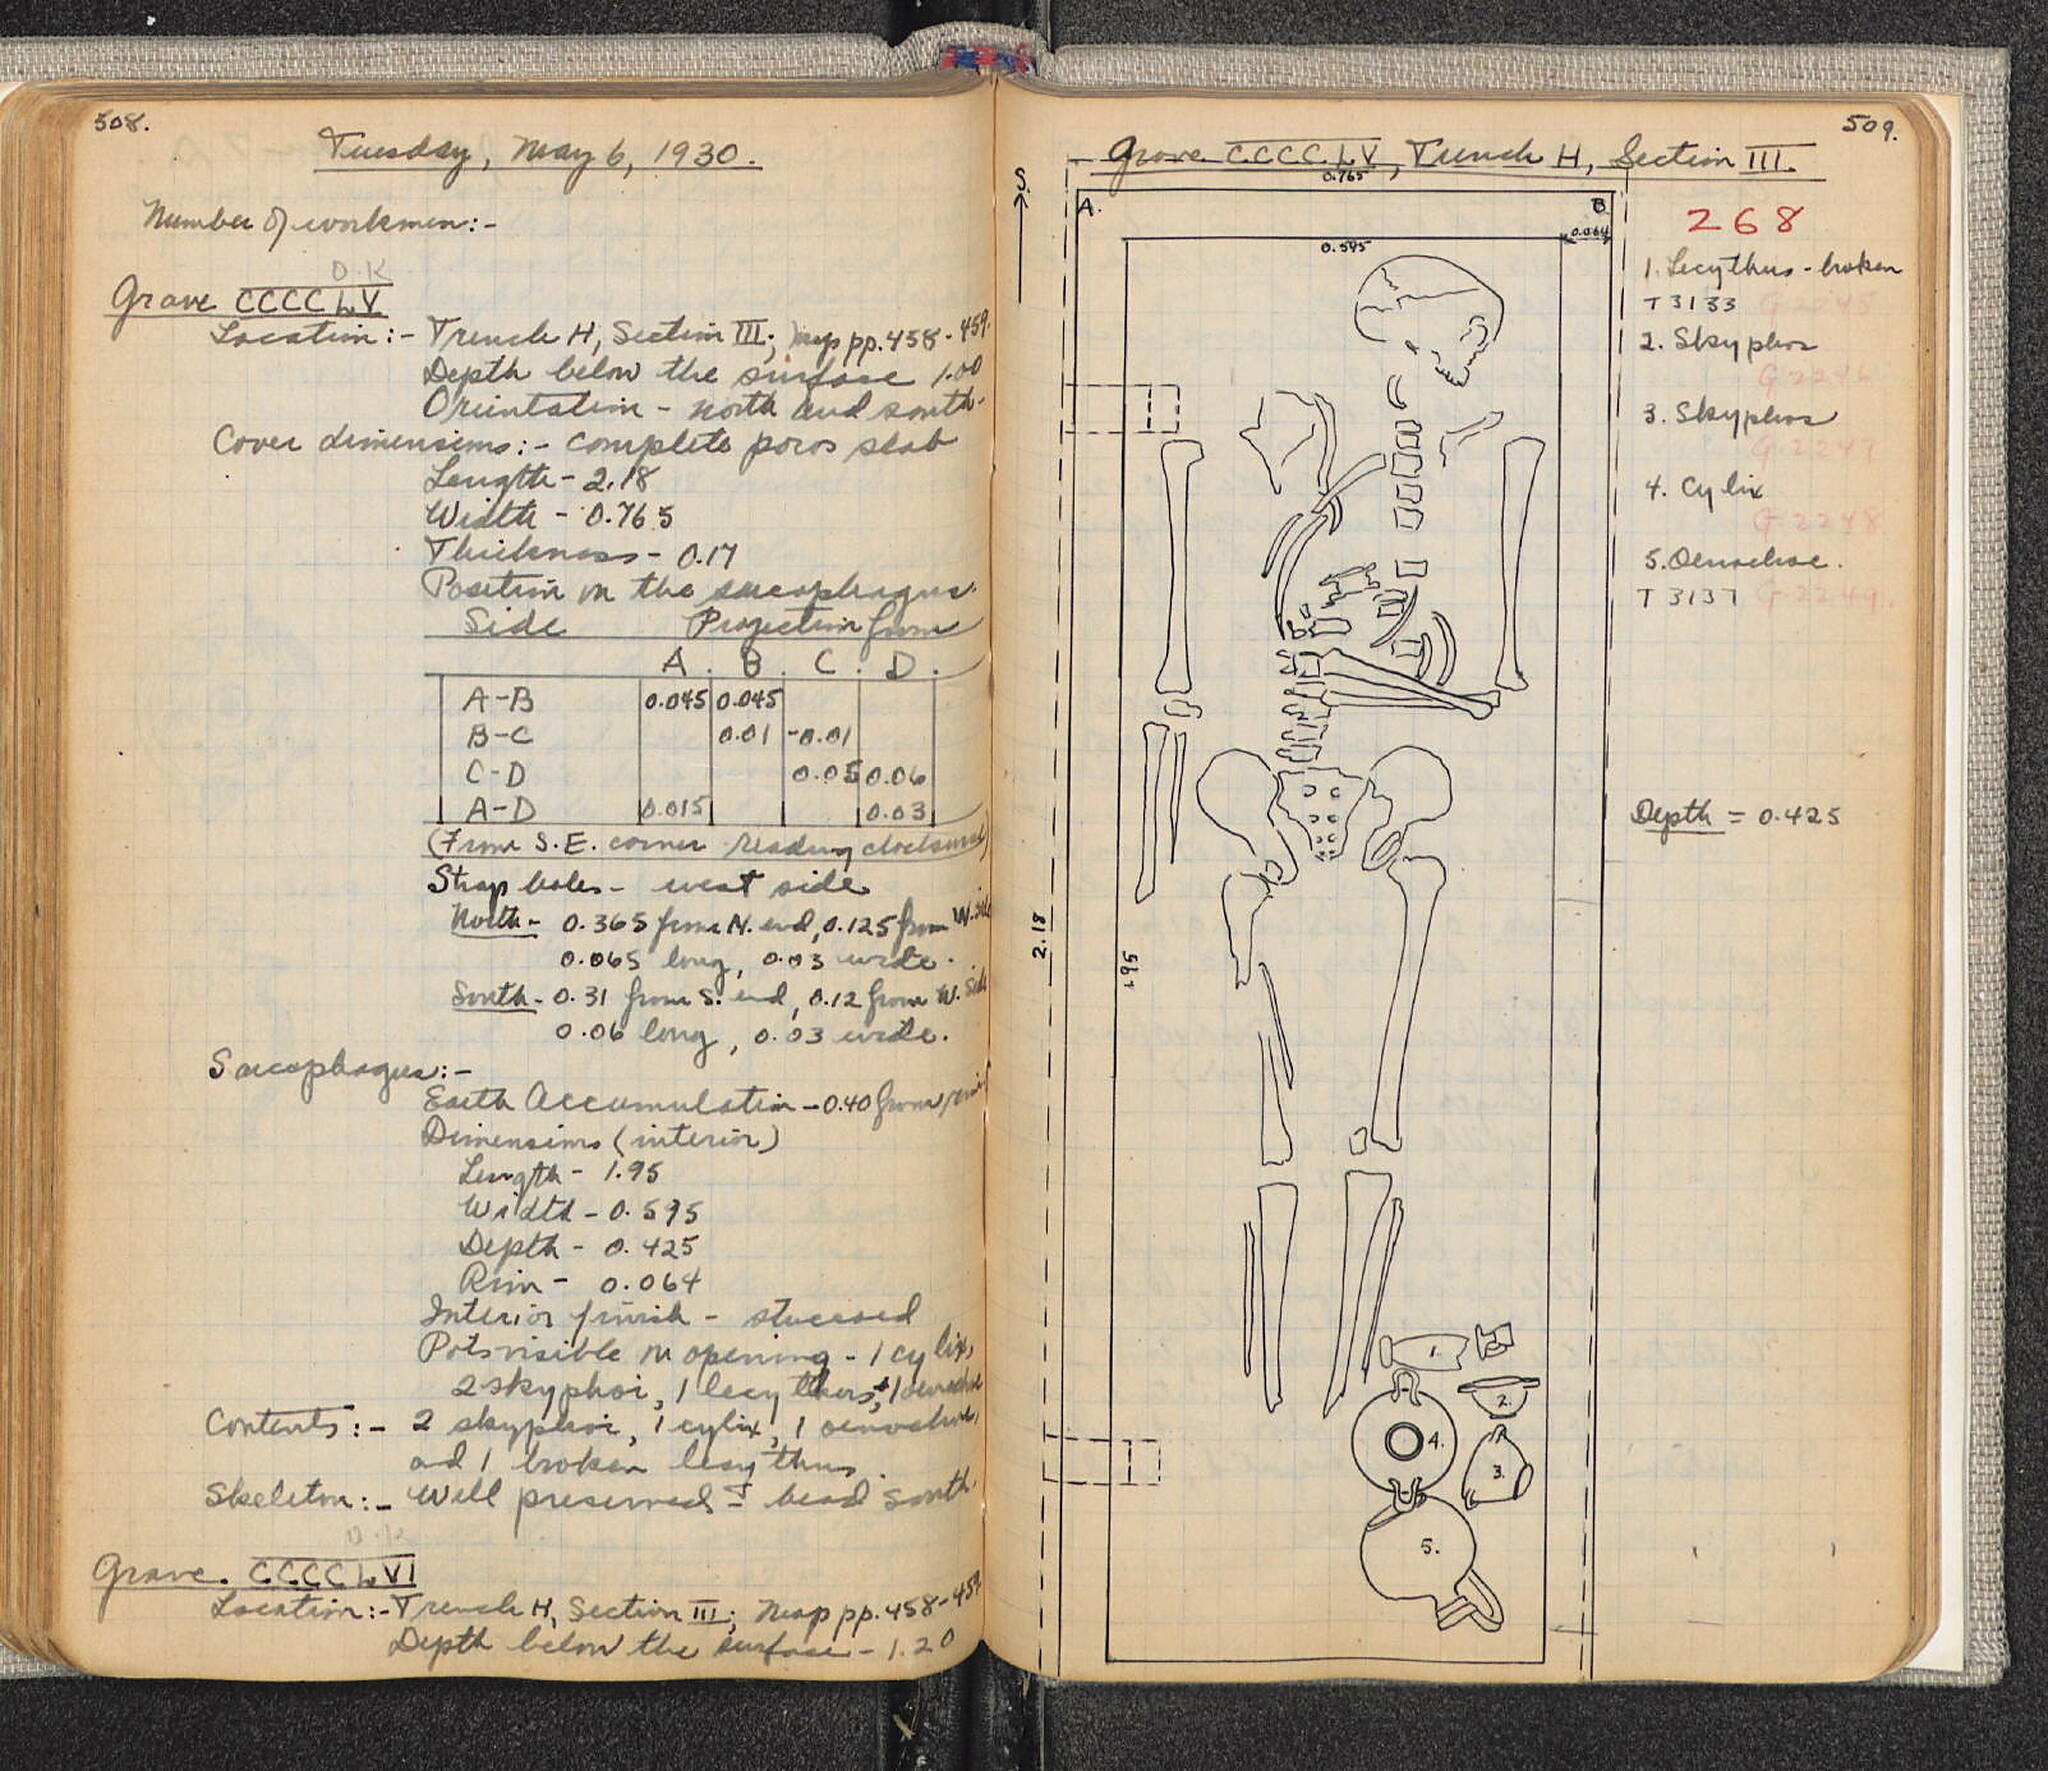 508.
Tuesday, May 6, 1930.
Number of workmen:-
O.K
Grave CCCCLV
Location:- Trench H, Section III; Map pp. 458-459.
Depth below the surface 1.00
Orientation - north and south.
Cover dimensions:- complete poros slab
Length - 2.18
Width - 0.765
Thickness - 0.17
Position on the sarcophagus.
Side Projection from
A. B. C. D.
A-B 0.045 0.045
B-C 0.01 -0.01
C-D 0.05 0.06
A-D 0.015 0.03
(From S.E. corner reading clockwise)
Strap holes - west side
North - 0.365 from N. end, 0.125 from W. side
0.065 long, 0.03 wide.
South - 0.31 from S. end, 0.12 from W. side
0.06 long, 0.03 wide.
Sarcophagus:-
Earth Accumulation - 0.40 from rim
Dimensions (interior)
Length - 1.95
Width - 0.595
Depth - 0.425
Rim - 0.064
Interior finish - stuccoed
Pots visible on opening - 1 cylix,
2 skyphoi, 1 lecythus, + 1 oenochoe
Contents:- 2 skyphoi, 1 cylix, 1 oenochoe,
and 1 broken lecythus.
Skeleton:- Well preserved - head south.
O.K
Grave. CCCCLVI
Location:- Trench H, Section III; Map pp. 458-459.
Depth below the surface - 1.20
509.
Grave CCCCLV, Trench H, Section III.
S.
0.765
A. B
0.064
0.595
268
1. Lecythus - broken
T 3133 G 2245
2. Skyphos
G 2246
3. Skyphos
G 2247
4. Cylix
G 2248
5. Oenochoe.
T 3137 G 2249.
Depth = 0.425
2.18
1.95
1.
2.
4.
3.
5.